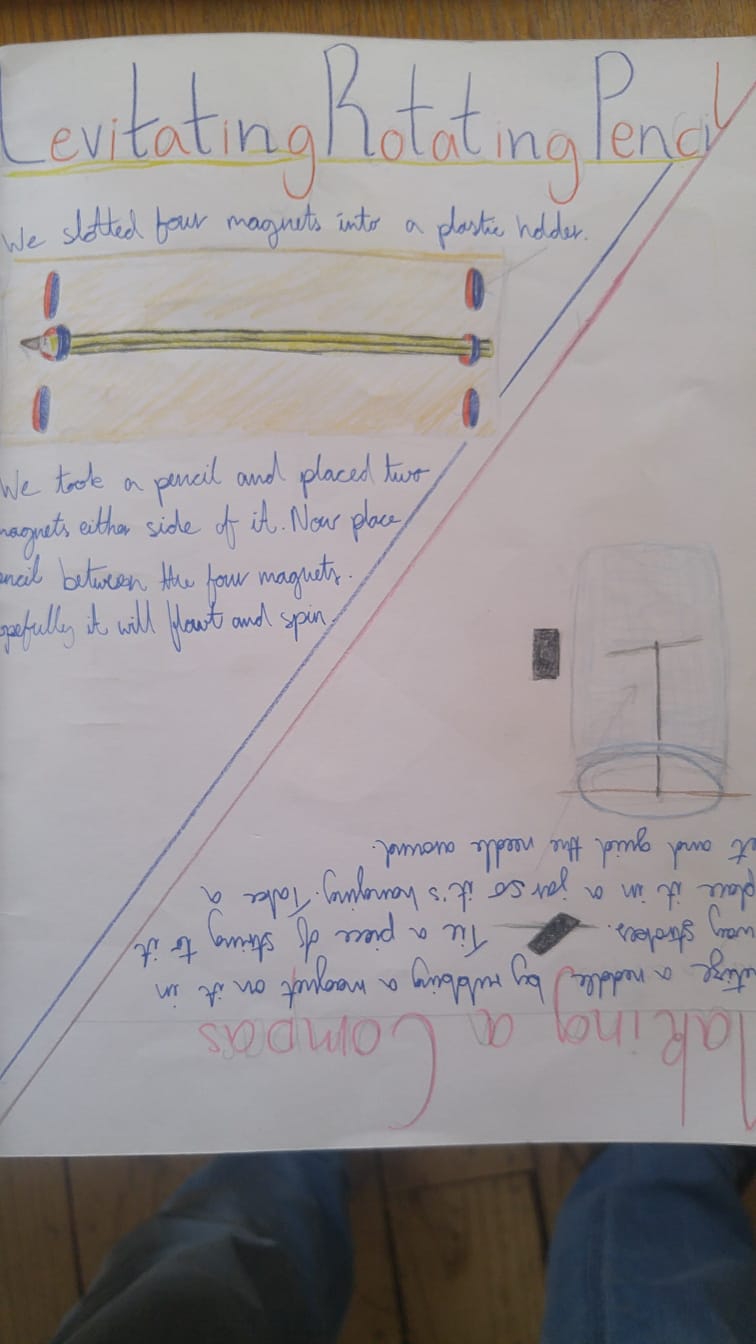 Levitating Rotating Pencil
We slotted four magnets into a plastic holder.
We took a pencil and placed two
magnets either side of it. Now place
encil between the four magnets.
opefully it will flowt and spin.
Making a Compas
etize a neddle by rubbing a magnet on it in
way strokes. Tie a piece of string to it
place it in a jar so it's hanging. Take a
et and guid the needle around.